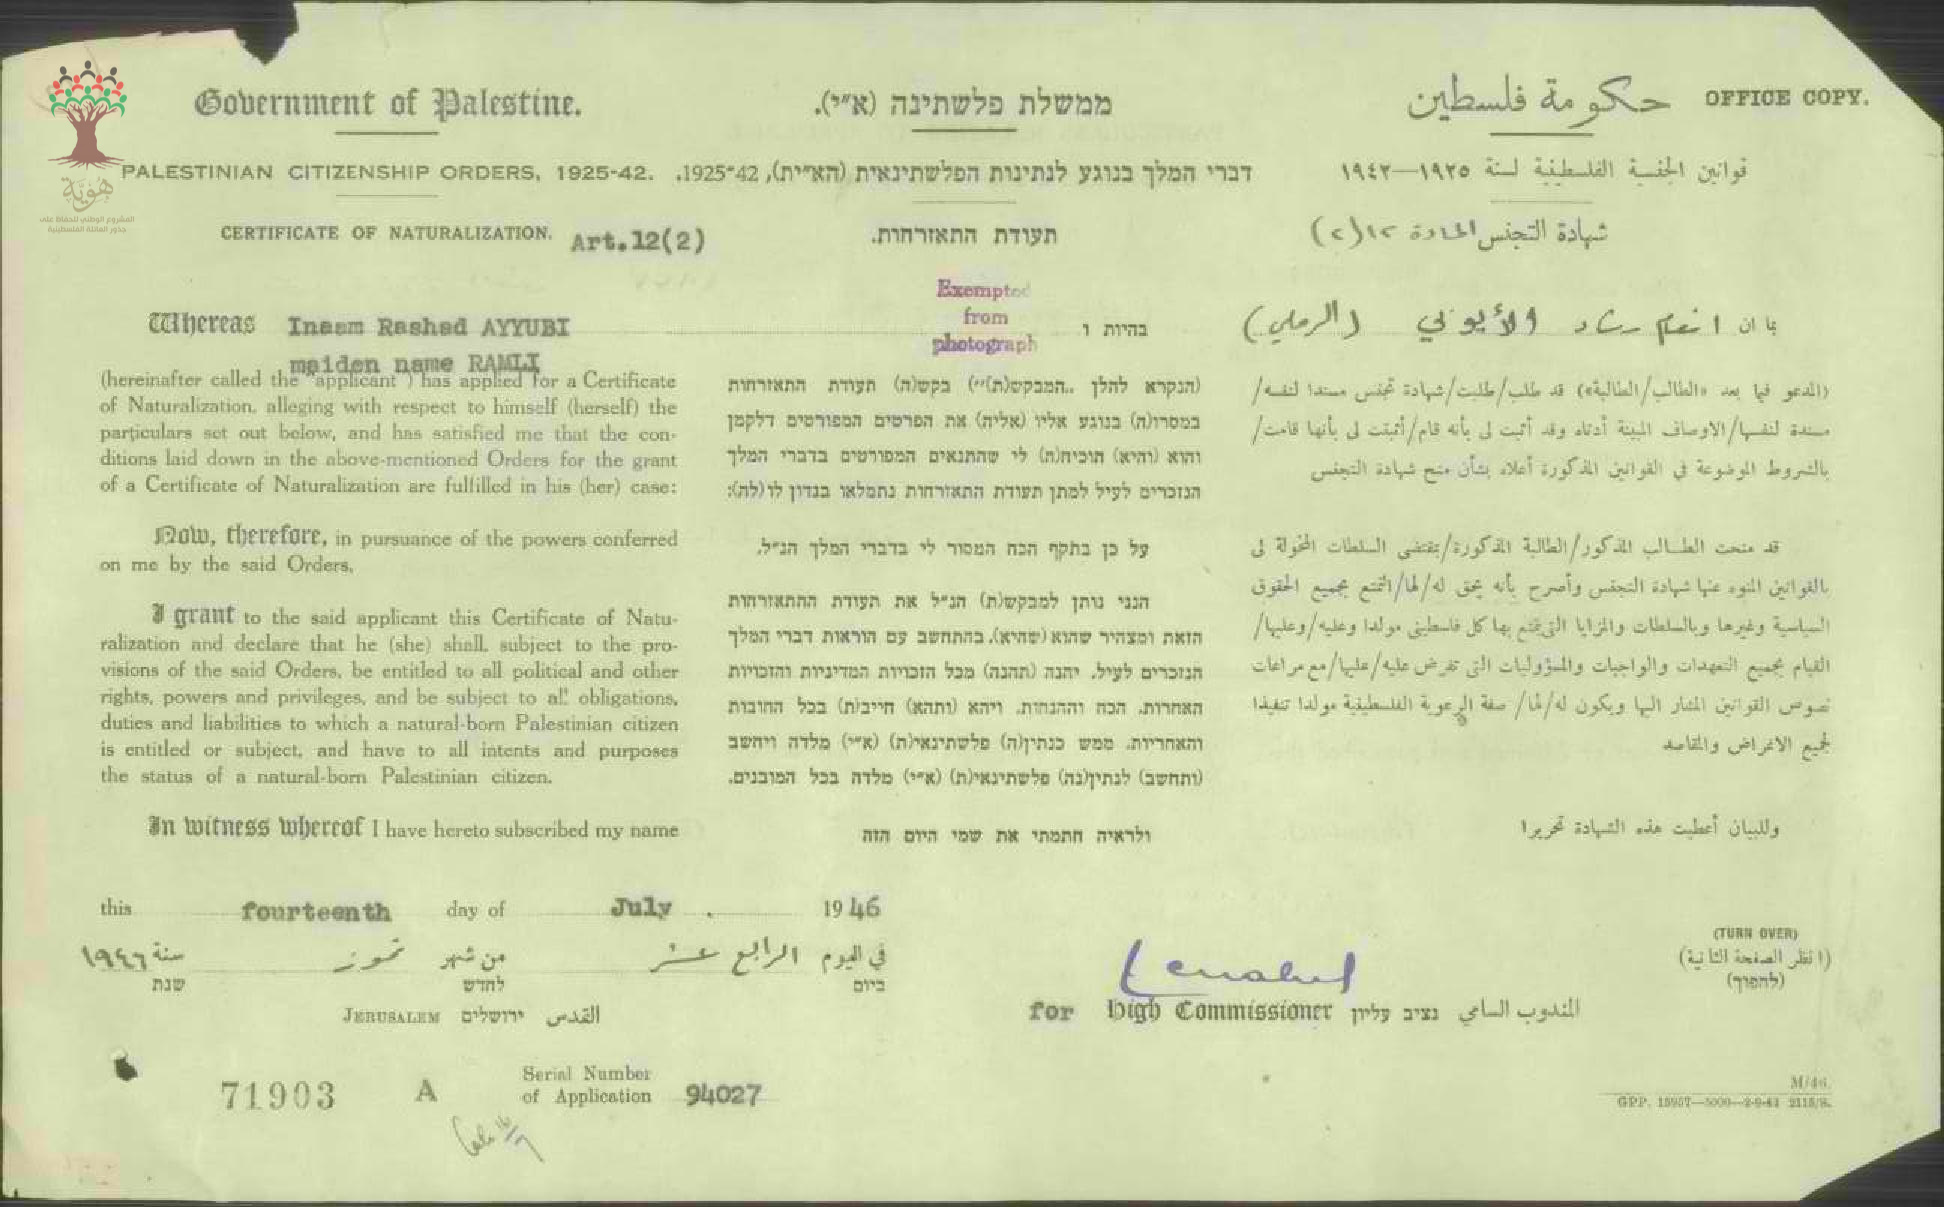 Government of Palestine.
ממשלת פלשתינה (א״י).
حكومة فلسطين
OFFICE COPY.
PALESTINIAN CITIZENSHIP ORDERS, 1925-42.
דברי המלך בנוגע לנתינות הפלשתינאית (הא״ית), 1925-42.
قوانين الجنسية الفلسطينية لسنة ١٩٢٥—١٩٤٢
هُويّة
المشروع الوطني للحفاظ على
جذور العائلة الفلسطينية
CERTIFICATE OF NATURALIZATION. Art.12(2)
תעודת התאזרחות.
شهادة التجنس المادة ١٢(٢)
Exempted
from
photograph
Whereas Inaam Rashad AYYUBI
maiden name RAMLI
(hereinafter called the "applicant") has applied for a Certificate
of Naturalization, alleging with respect to himself (herself) the
particulars set out below, and has satisfied me that the con-
ditions laid down in the above-mentioned Orders for the grant
of a Certificate of Naturalization are fulfilled in his (her) case:
Now, therefore, in pursuance of the powers conferred
on me by the said Orders,
I grant to the said applicant this Certificate of Natu-
ralization and declare that he (she) shall, subject to the pro-
visions of the said Orders, be entitled to all political and other
rights, powers and privileges, and be subject to all obligations,
duties and liabilities to which a natural-born Palestinian citizen
is entitled or subject, and have to all intents and purposes
the status of a natural-born Palestinian citizen.
In witness whereof I have hereto subscribed my name
בהיות ו
(הנקרא להלן ,,המבקש(ת)״) בקש(ה) תעודת התאזרחות
במסרו(ה) בנוגע אליו (אליה) את הפרטים המפורטים דלקמן
והוא (והיא) הוכיח(ה) לי שהתנאים המפורטים בדברי המלך
הנזכרים לעיל למתן תעודת התאזרחות נתמלאו בנדון לו(לה):
על כן בתקף הכח המסור לי בדברי המלך הנ״ל,
הנני נותן למבקש(ת) הנ״ל את תעודת ההתאזרחות
הזאת ומצהיר שהוא (שהיא), בהתחשב עם הוראות דברי המלך
הנזכרים לעיל, יהנה (תהנה) מכל הזכויות המדיניות והזכויות
האחרות, הכח וההנחות, ויהא (ותהא) חייב(ת) בכל החובות
והאחריות, ממש כנתין(ה) פלשתינאי(ת) (א״י) מלדה ויחשב
(ותחשב) לנתין(נה) פלשתינאי(ת) (א״י) מלדה בכל המובנים.
ולראיה חתמתי את שמי היום הזה
بما ان انعام رشاد الأيوبي (الرملي)
(المدعو فيما بعد «الطالب/الطالبة») قد طلب/طلبت/شهادة تجنس مسندا لنفسه/
مسندة لنفسها/الاوصاف المبينة أدناه وقد أثبت لى بأنه قام/أثبتت لى بأنها قامت/
بالشروط الموضوعة في القوانين المذكورة أعلاه بشأن منح شهادة التجنس
قد منحت الطالب المذكور/الطالبة المذكورة/بمقتضى السلطات المخولة لى
بالقوانين المنوه عنها شهادة التجنس وأصرح بأنه يحق له/لها/التمتع بجميع الحقوق
السياسية وغيرها وبالسلطات والمزايا التى يتمتع بها كل فلسطينى مولدا وعليه/وعليها/
القيام بجميع التعهدات والواجبات والمسؤوليات التى تفرض عليه/عليها/مع مراعات
نصوص القوانين المشار اليها ويكون له/لها/ صفة الرعوية الفلسطينية مولدا تنفيذا
لجميع الاغراض والمقاصد
وللبيان أعطيت هذه الشهادة تحريرا
this fourteenth day of July . 1946
في اليوم الرابع عشر من شهر تموز سنة ١٩٤٦
ביום לחדש שנת
JERUSALEM ירושלים القدس
for High Commissioner נציב עליון المندوب السامي
(TURN OVER)
(انظر الصفحة الثانية)
(להפוך)
71903 A
Serial Number
of Application 94027
M/46.
GPP. 15957—5000—2-9-43 2115/S.